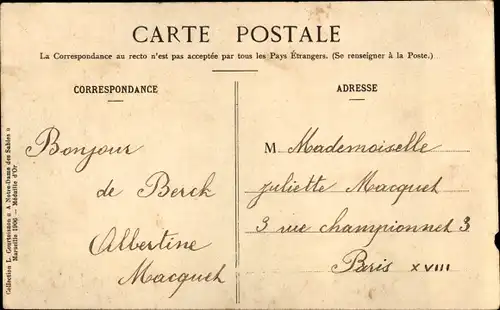 CARTE POSTALE
La Correspondance au recto n'est pas acceptée par tous les Pays Étrangers. (Se renseigner à la Poste.)
CORRESPONDANCE
ADRESSE
Bonjour
de Berck
Albertine
Macquet
M Mademoiselle
Juliette Macquet
3 rue championnet 3
Paris XVIII
Collection L. Gourtessanne « A Notre-Dame des Sables »
Marseille 1906 — Médaille d'Or.